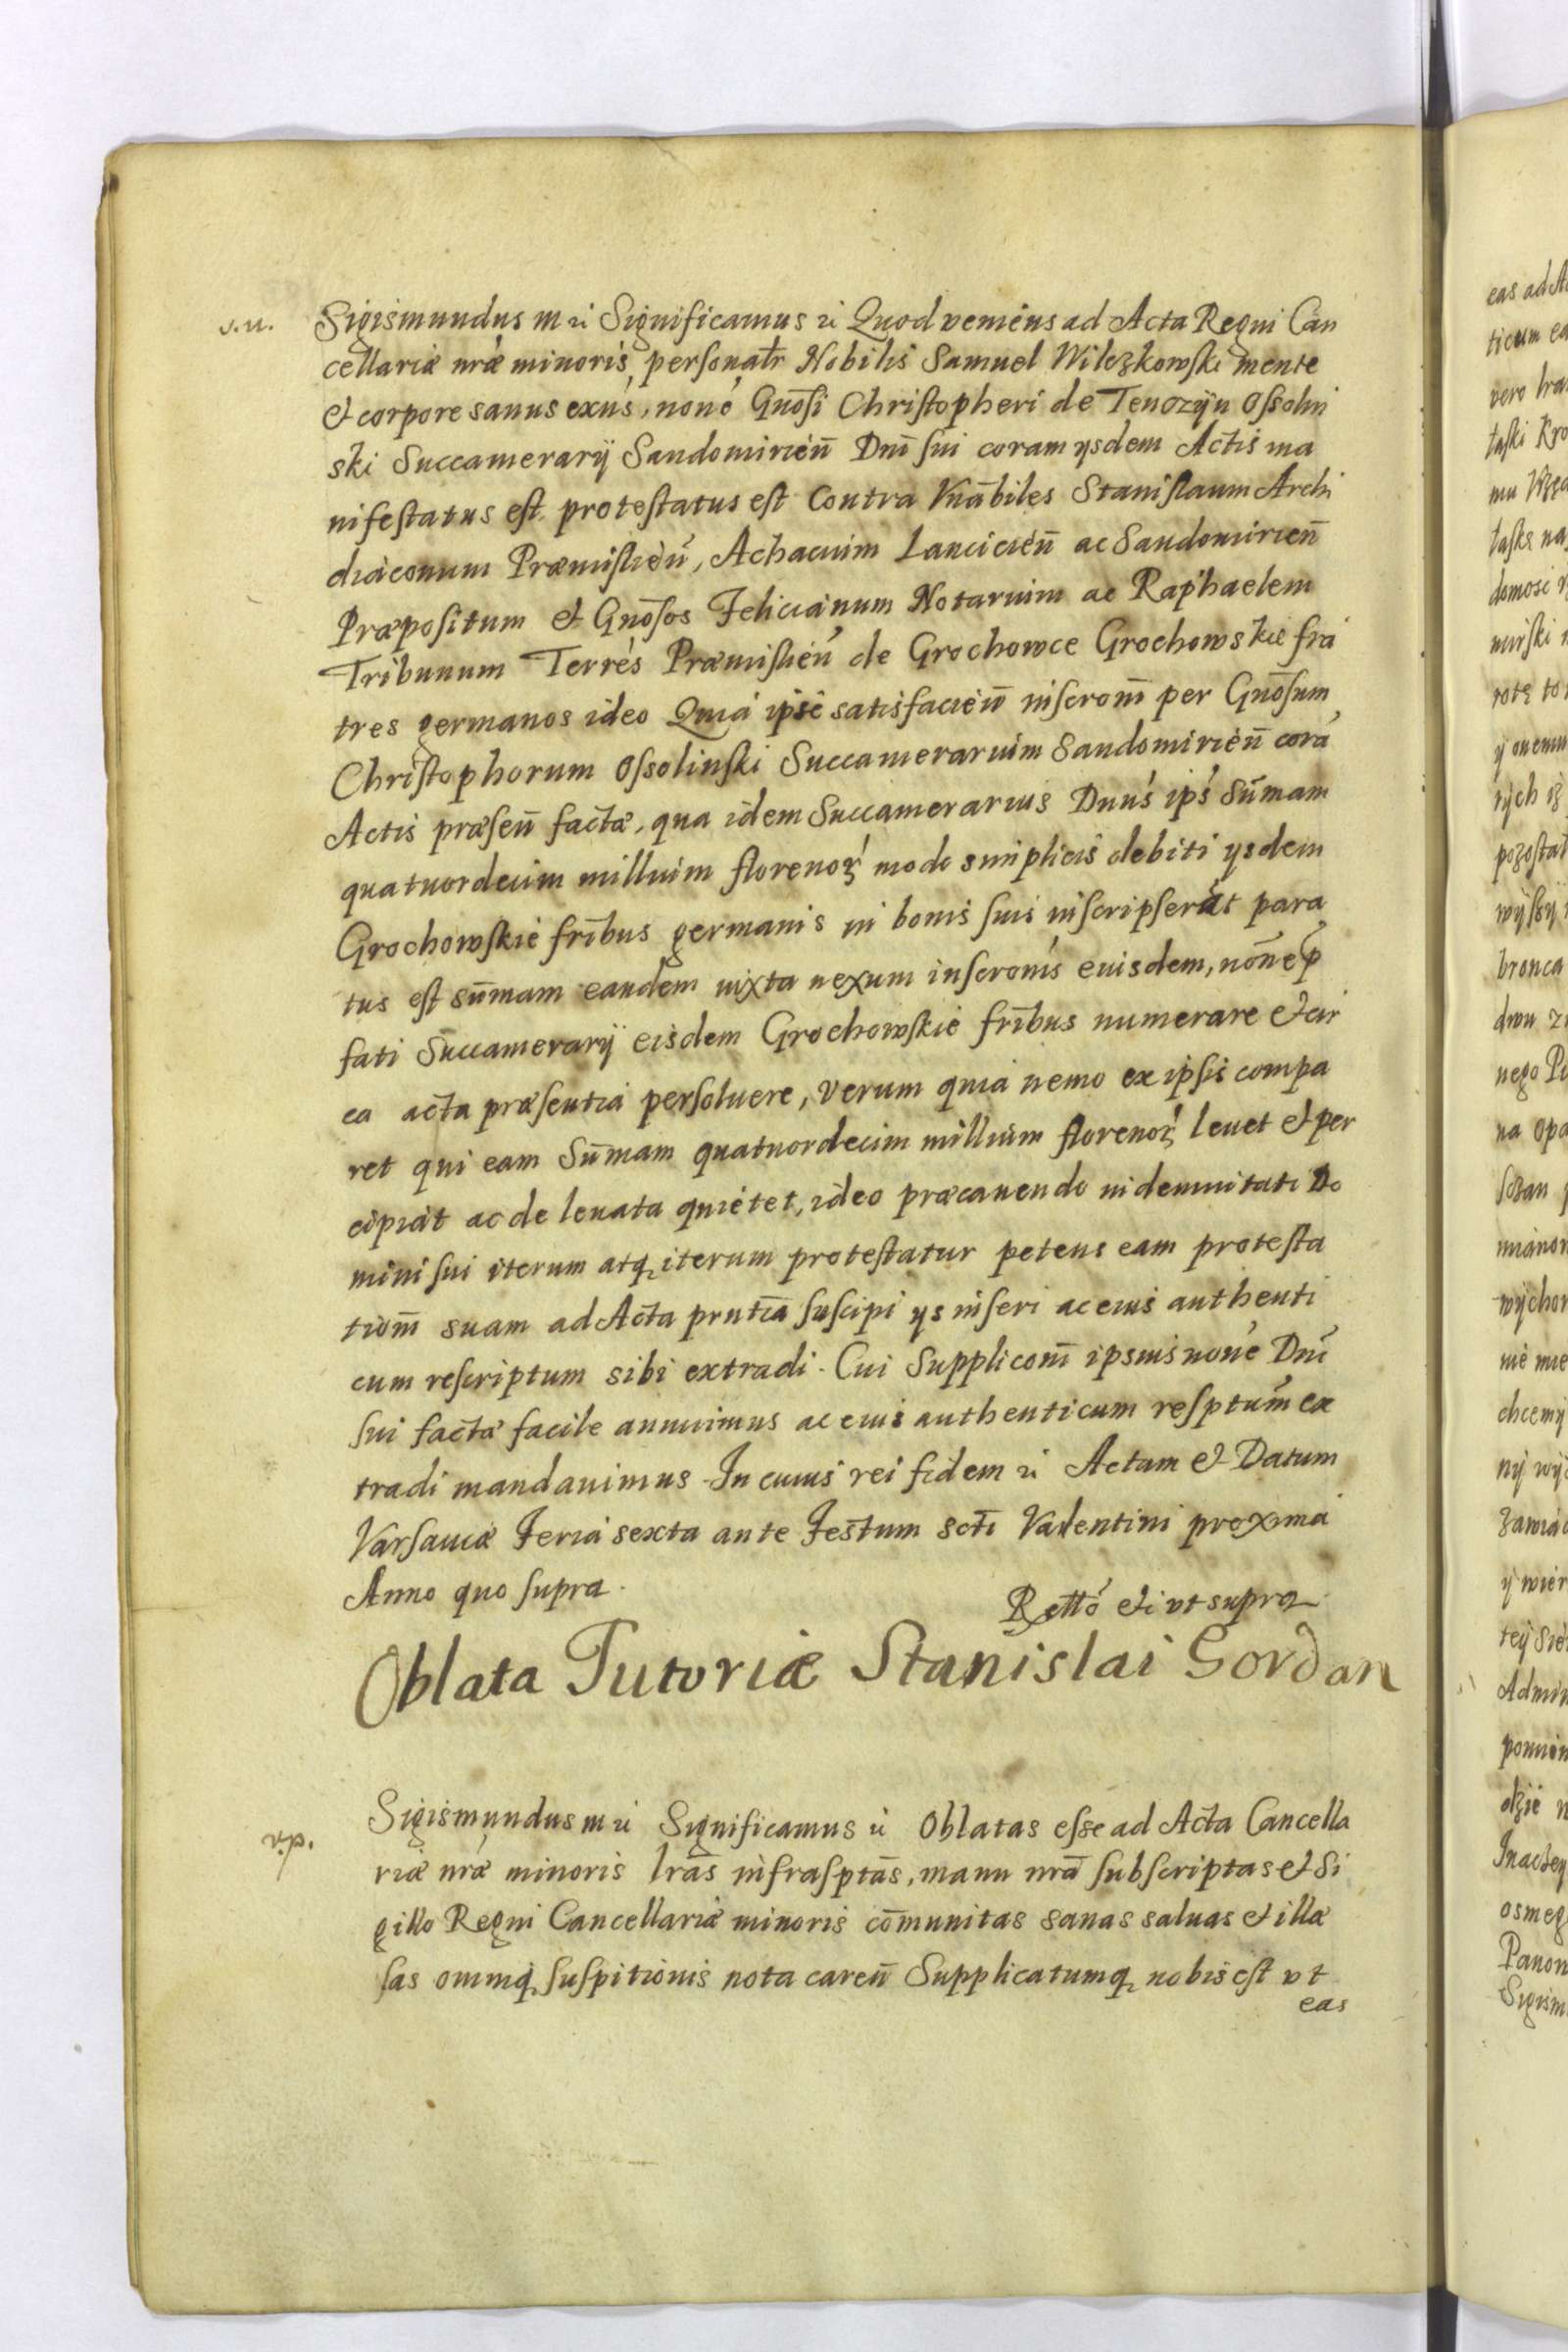 v.n. Sigismundus III &c Significamus &c Quod veniens ad Acta Regni Can
cellariæ nræ minoris, personalr Nobilis Samuel Wilczkowski mente
et corpore sanus exns, none Gnosi Christopheri de Tenczÿn Ossolin
ski Succamerarÿ Sandomirien Dni sui coram ysdem Actis ma
nifestatus est protestatus est Contra Vnabiles Stanislaum Archi
diaconum Præmislien, Achacium Lancicien ac Sandomirien
Præpositum et Gnosos Felicianum Notarium ac Raphaelem
Tribunum Terres Præmislien de Grochowce Grochowskie fra
tres germanos ideo Quia ipse satisfacien inscrom per Gnosum
Christophorum Ossolinski Succamerarium Sandomirien cora
Actis præsen factæ, qua idem Succamerarius Dnus ips Sumam
quatuordecim millium florenoz modo simplicis debiti ysdem
Grochowskie fribus germanis in bonis suis inscripserat para
tus est sumam eandem iuxta nexum inscronis euisdem, none p
fati Succamerarÿ eisdem Grochowskie fribus numerare et cir
ca acta præsentia persoluere, verum quia nemo ex ipsis compa
ret qui eam Sumam quatuordecim millium florenoz leuet et per
cipiat ac de leuata quietet, ideo præcauendo indemnitati Do
mini sui iterum atq iterum protestatur petens eam protesta
tiom suam ad Acta prntia suscipi ys inseri ac eius authenti
cum rescriptum sibi extradi. Cui Supplicom ipsius none Dni
sui factæ facile annuimus ac eius authenticum resptum ex
tradi mandauimus. In cuius rei fidem &c Actum et Datum
Varsauiæ Feria sexta ante Festum scti Valentini proxima
Anno quo supra.
Rlltio eti vt supra
Oblata Tutoriæ Stanislai Gordan
v.p. Sigismundus III &c Significamus &c Oblatas esse ad Acta Cancella
riæ nræ minoris lras infrasptas, manu nra subscriptas et Si
gillo Regni Cancellariæ minoris comunitas sanas saluas et illæ
sas omniq suspitionis nota caren Supplicatumq nobis est vt
eas